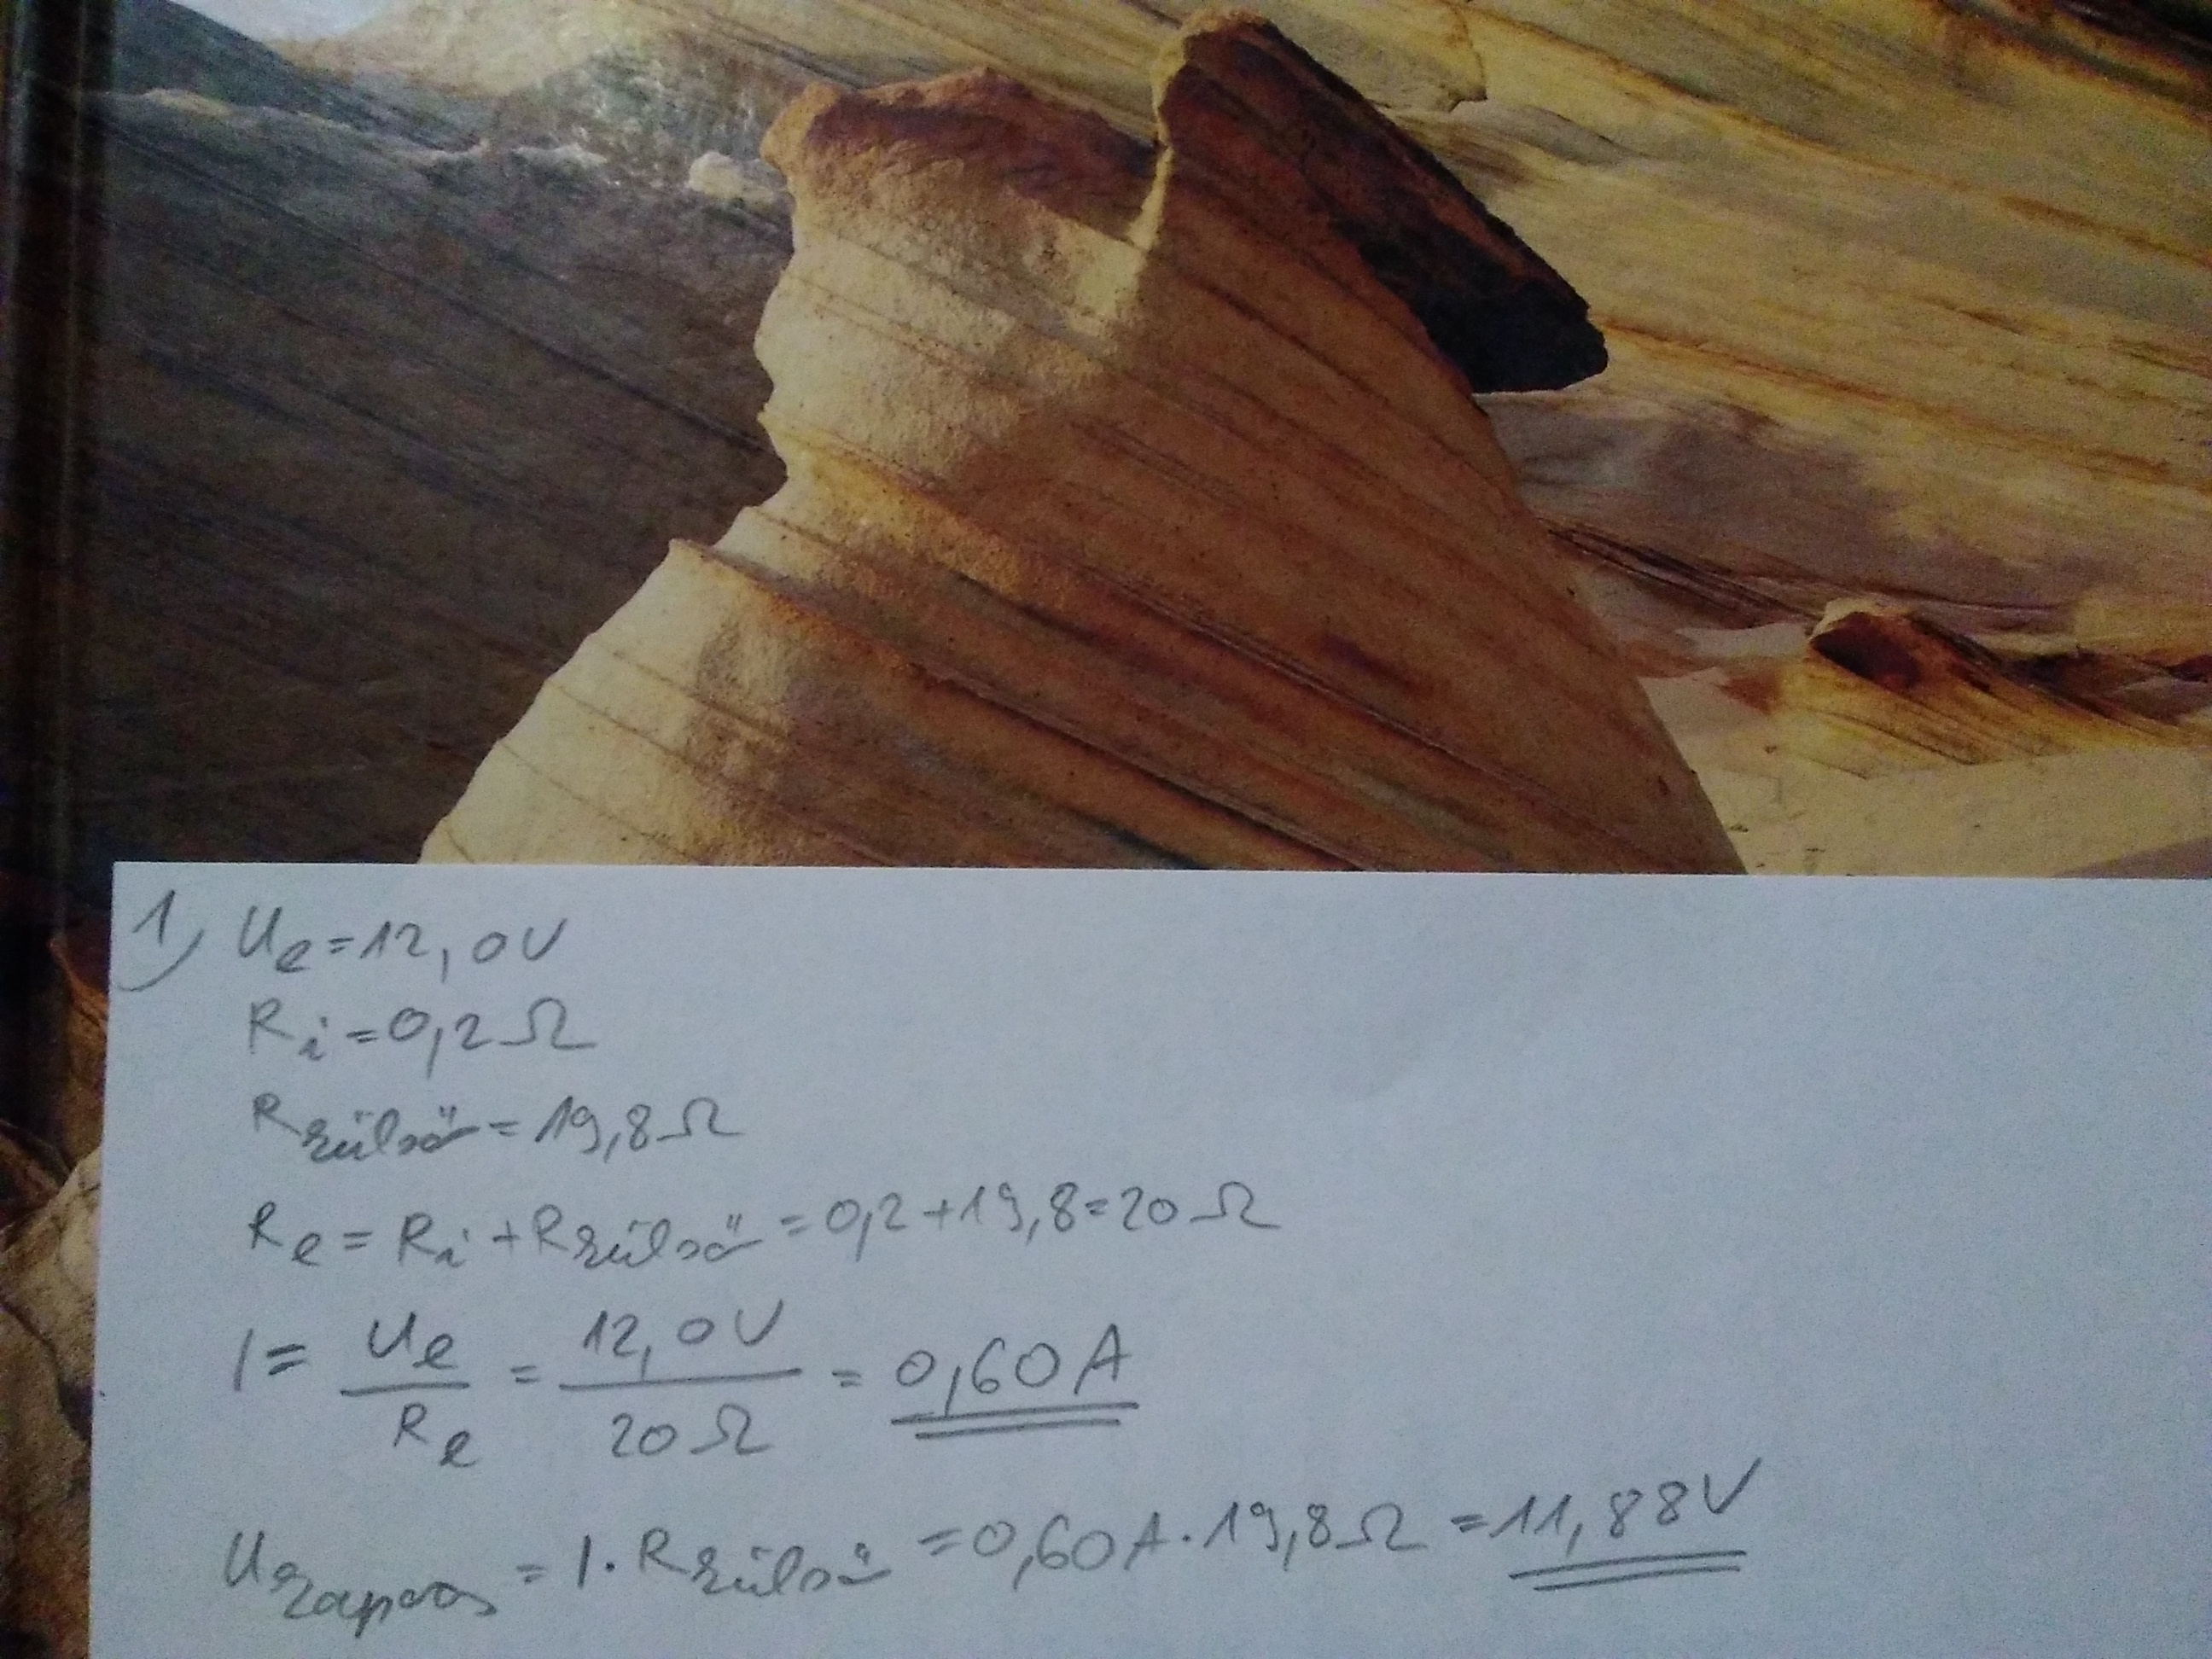 1) Ue = 12,0V
Ri = 0,2 Ω
Rkülső = 19,8 Ω
Re = Ri + Rkülső = 0,2 + 19,8 = 20 Ω
I = Ue/Re = 12,0V/20 Ω = 0,60 A
Ukapocs = I · Rkülső = 0,60 A · 19,8 Ω = 11,88 V